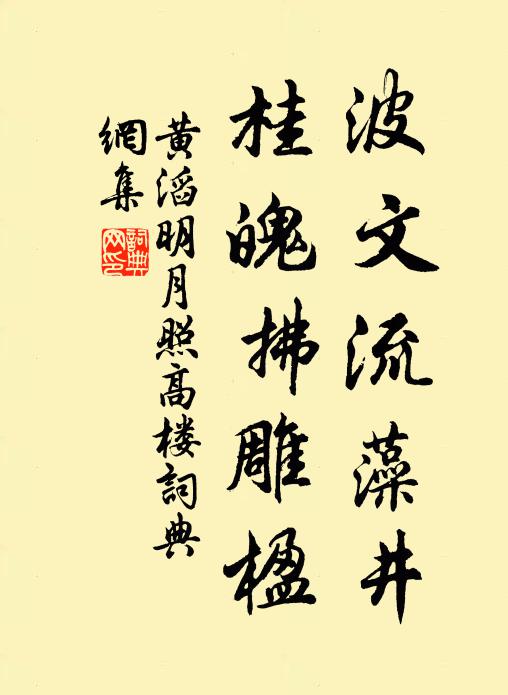 波文流藻井
桂魄拂雕楹
黄滔明月照高楼詞典
網集
詞典网印